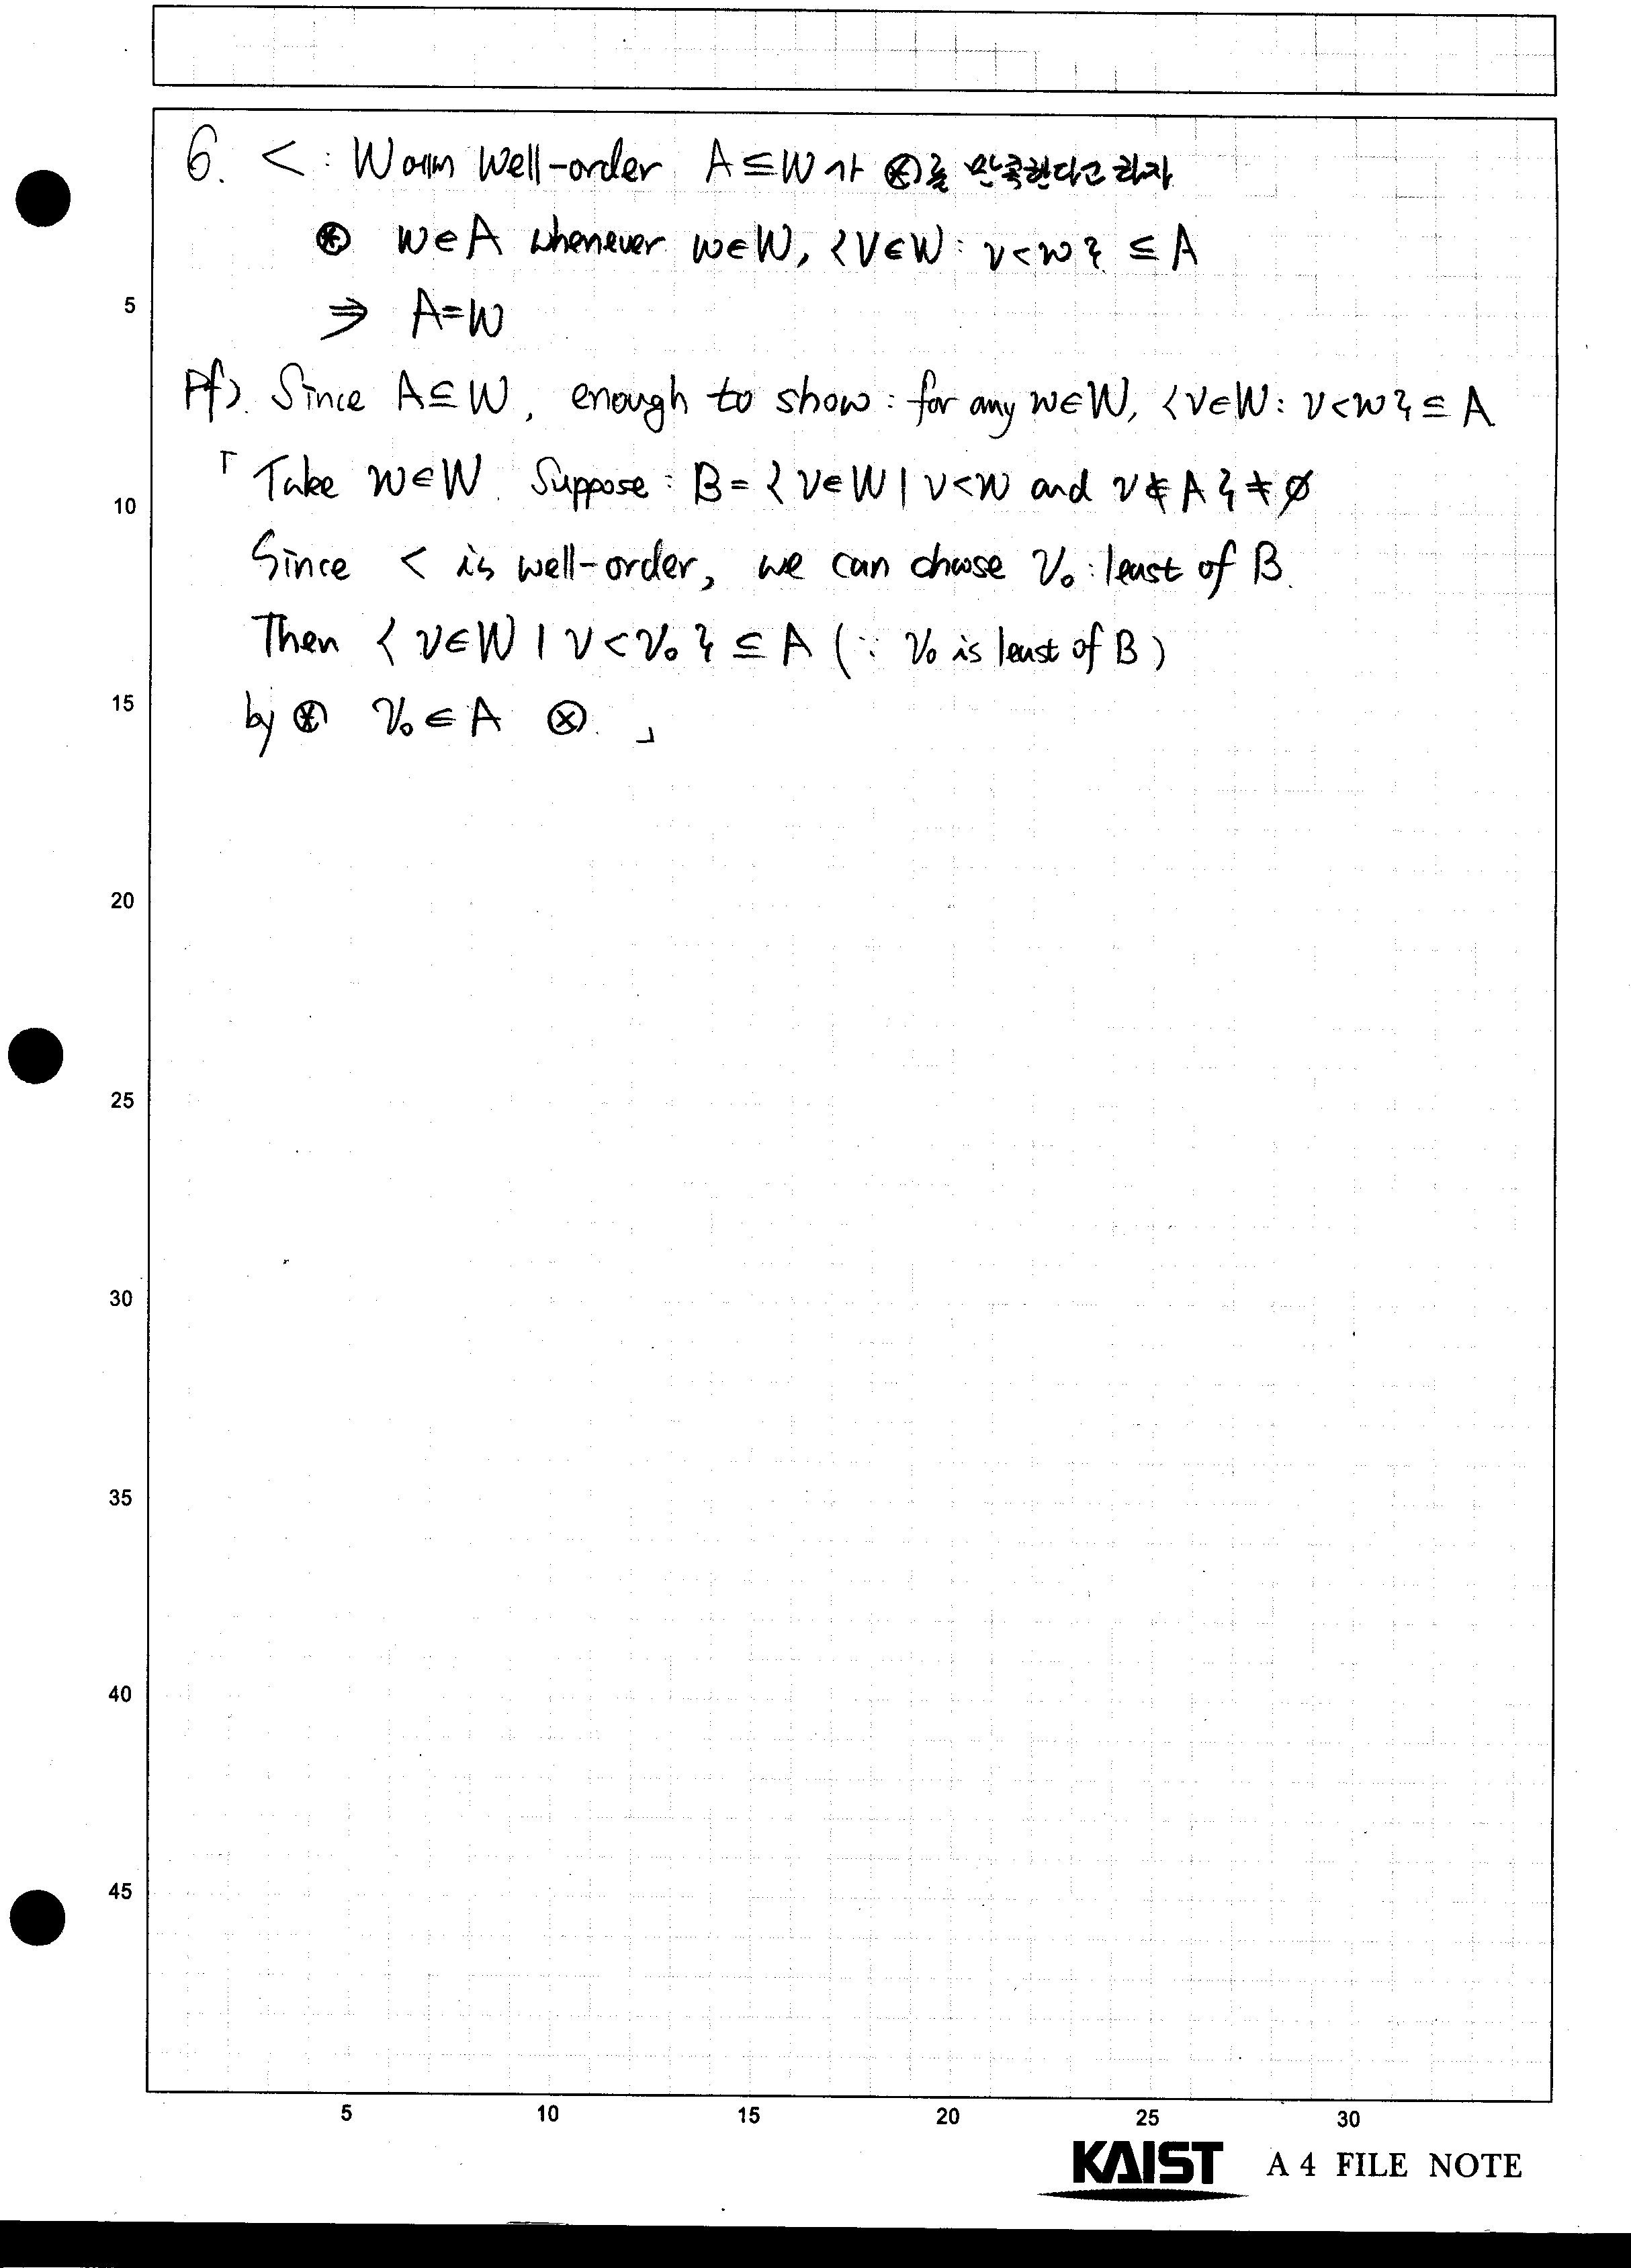 6. < : W 에서 well-order A ⊆ W 가 ⊛를 만족한다고 하자
⊛ w ∈ A whenever w ∈ W, {v ∈ W : v < w} ⊆ A
⇒ A = W
Pf). Since A ⊆ W, enough to show : for any w ∈ W, {v ∈ W : v < w} ⊆ A
「 Take w ∈ W. Suppose : B = {v ∈ W | v < w and v ∉ A} ≠ ∅
Since < is well-order, we can choose v₀ : least of B.
Then {v ∈ W | v < v₀} ⊆ A (∵ v₀ is least of B)
by ⊛ v₀ ∈ A ⊗. 」
5
10
15
20
25
30
35
40
45
5 10 15 20 25 30
KAIST A4 FILE NOTE